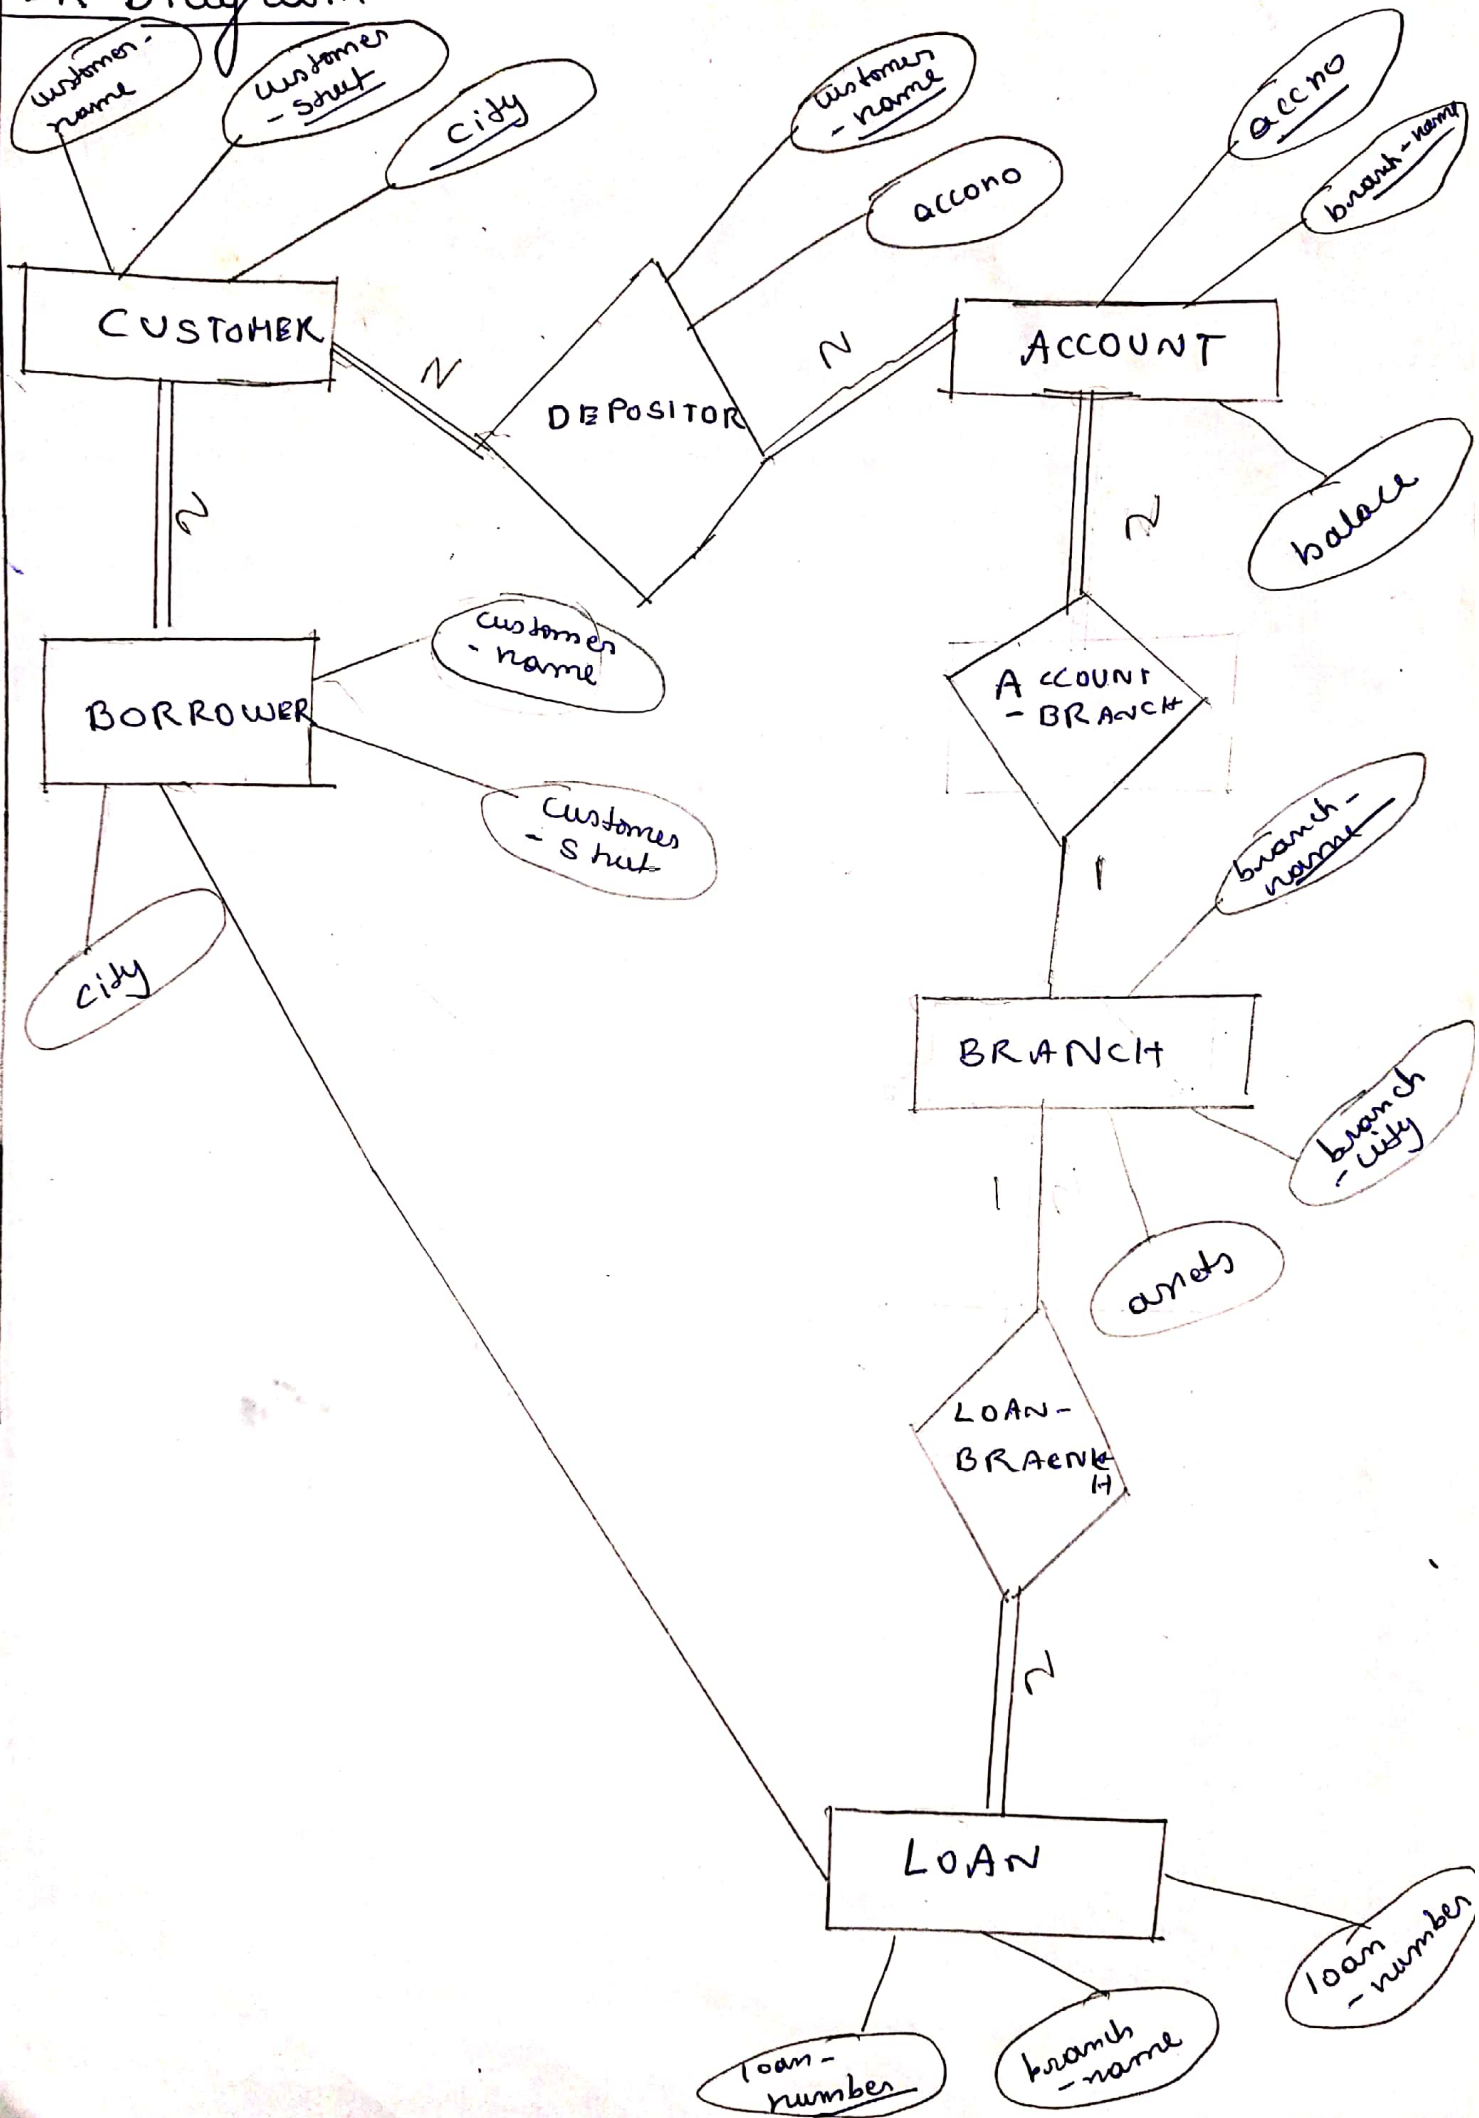 Diagram
customer-
name
customer
- street
city
customer
- name
accono
accno
branch-name
CUSTOMER
N
DEPOSITOR
N
ACCOUNT
balace
N
N
customer
- name
BORROWER
customer
- street
city
ACCOUNT
- BRANCH
1
branch-
name
BRANCH
branch
- city
1
assets
LOAN-
N
LOAN
loan
- number
loan-
number
branch
- name